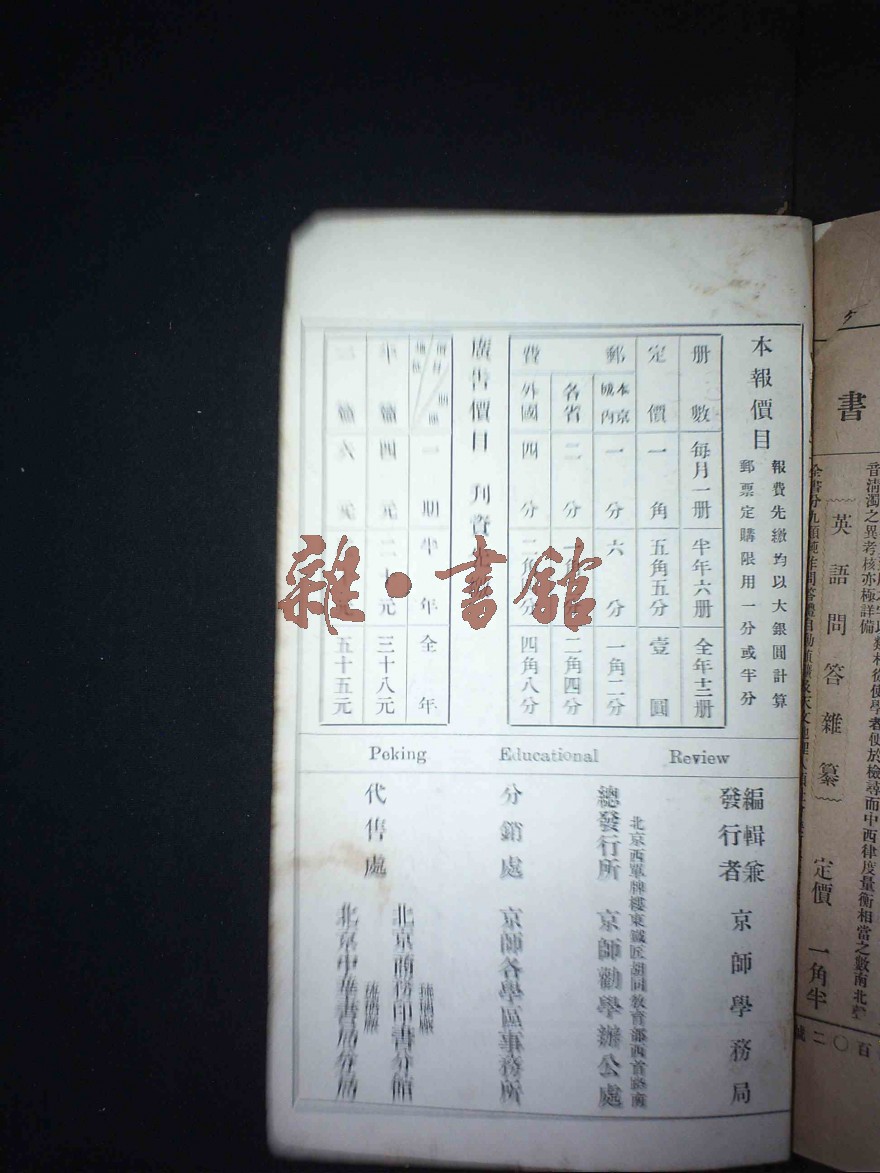 本報價目
報費先繳均以大銀圓計算
郵票定購限用一分或半分
册數 每月一册 半年六册 全年十二册
定價 一角 五角五分 壹圓
郵費
本京城內 一分 六分 一角二分
各省 二分 二角四分
外國 四分 二角 分 四角八分
廣告價目 刊資先
一期 半年 全年
半 四元 二十 元 三十八元
六元 五十五元
Peking Educational Review
編輯兼發行者 京師學務局
北京西單牌樓東鐵匠胡同教育部西首路南
總發行所 京師勸學辦公處
分銷處 京師各學區事務所
代售處
琉璃廠
北京商務印書分館
琉璃廠
北京中華書局分局
雜·書館
書
音清濁之異考核亦極詳備
英語問答雜纂 定價 一角半